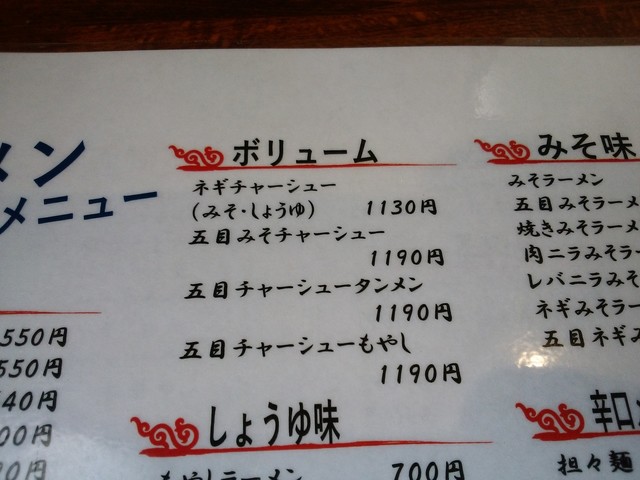 メン
メニュー
550円
550円
40円
00円
ボリューム
ネギチャーシュー
(みそ・しょうゆ) 1130円
五目みそチャーシュー
1190円
五目チャーシュータンメン
1190円
五目チャーシューもやし
1190円
しょうゆ味
もやしラーメン 700円
みそ味
みそラーメン
五目みそラーメ
焼きみそラーメ
肉ニラみそラー
レバニラみそ
ネギみそラー
五目ネギみ
辛口
担々麺